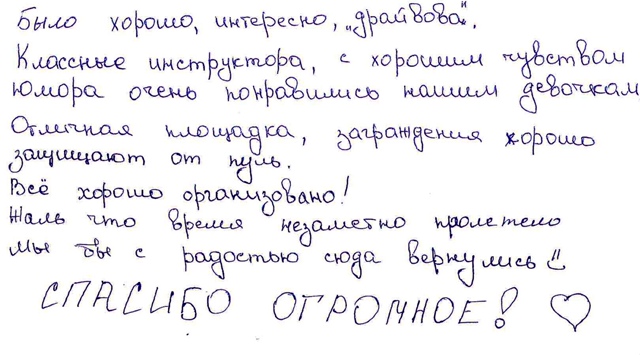 Было хорошо, интересно, „драйвова".
Классные инструктора, с хорошим чувством
юмора очень понравились нашим девочкам
Отличная площадка, заграждения хорошо
защищают от пуль.
Всё хорошо организовано!
Жаль что время незаметно пролетело
Мы бы с радостью сюда вернулись
СПАСИБО ОГРОМНОЕ!